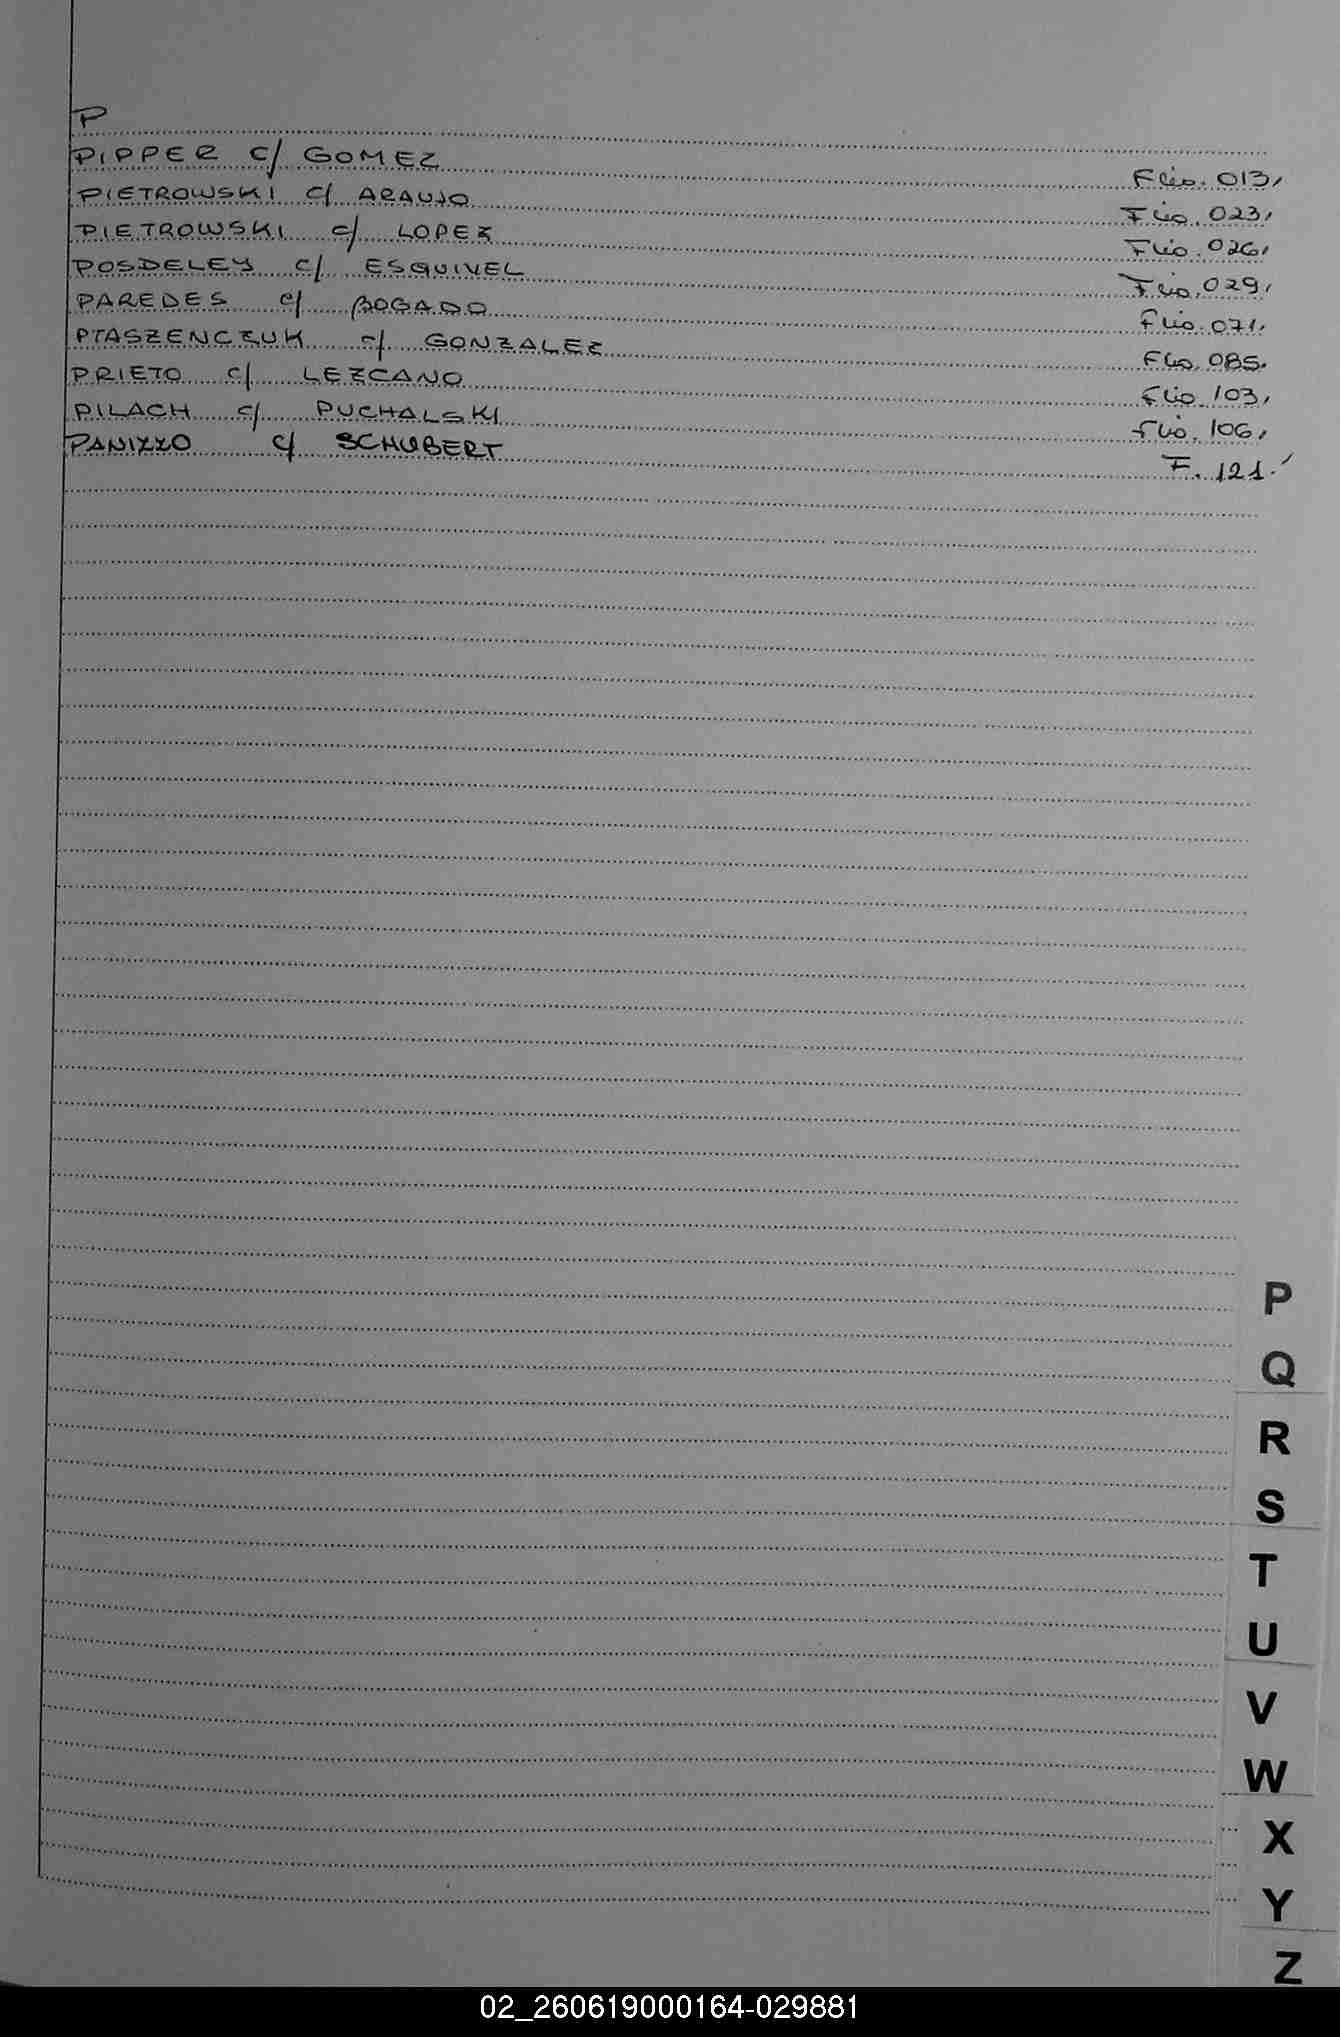 P
PIPPER c/ GOMEZ Flio. 013,
PIETROWSKI c/ ARAUJO Flio. 023,
PIETROWSKI c/ LOPEZ Flio. 026,
POSDELEY c/ ESQUIVEL Flio. 029,
PAREDES c/ BOGADO Flio. 071,
PTASZENCZUK c/ GONZALEZ Flio. 085.
PRIETO c/ LEZCANO Flio. 103,
PILACH c/ PUCHALSKI Flio. 106,
PANIZZO c/ SCHUBERT F. 121.
P
Q
R
S
T
U
V
W
X
Y
Z
02_260619000164-029881